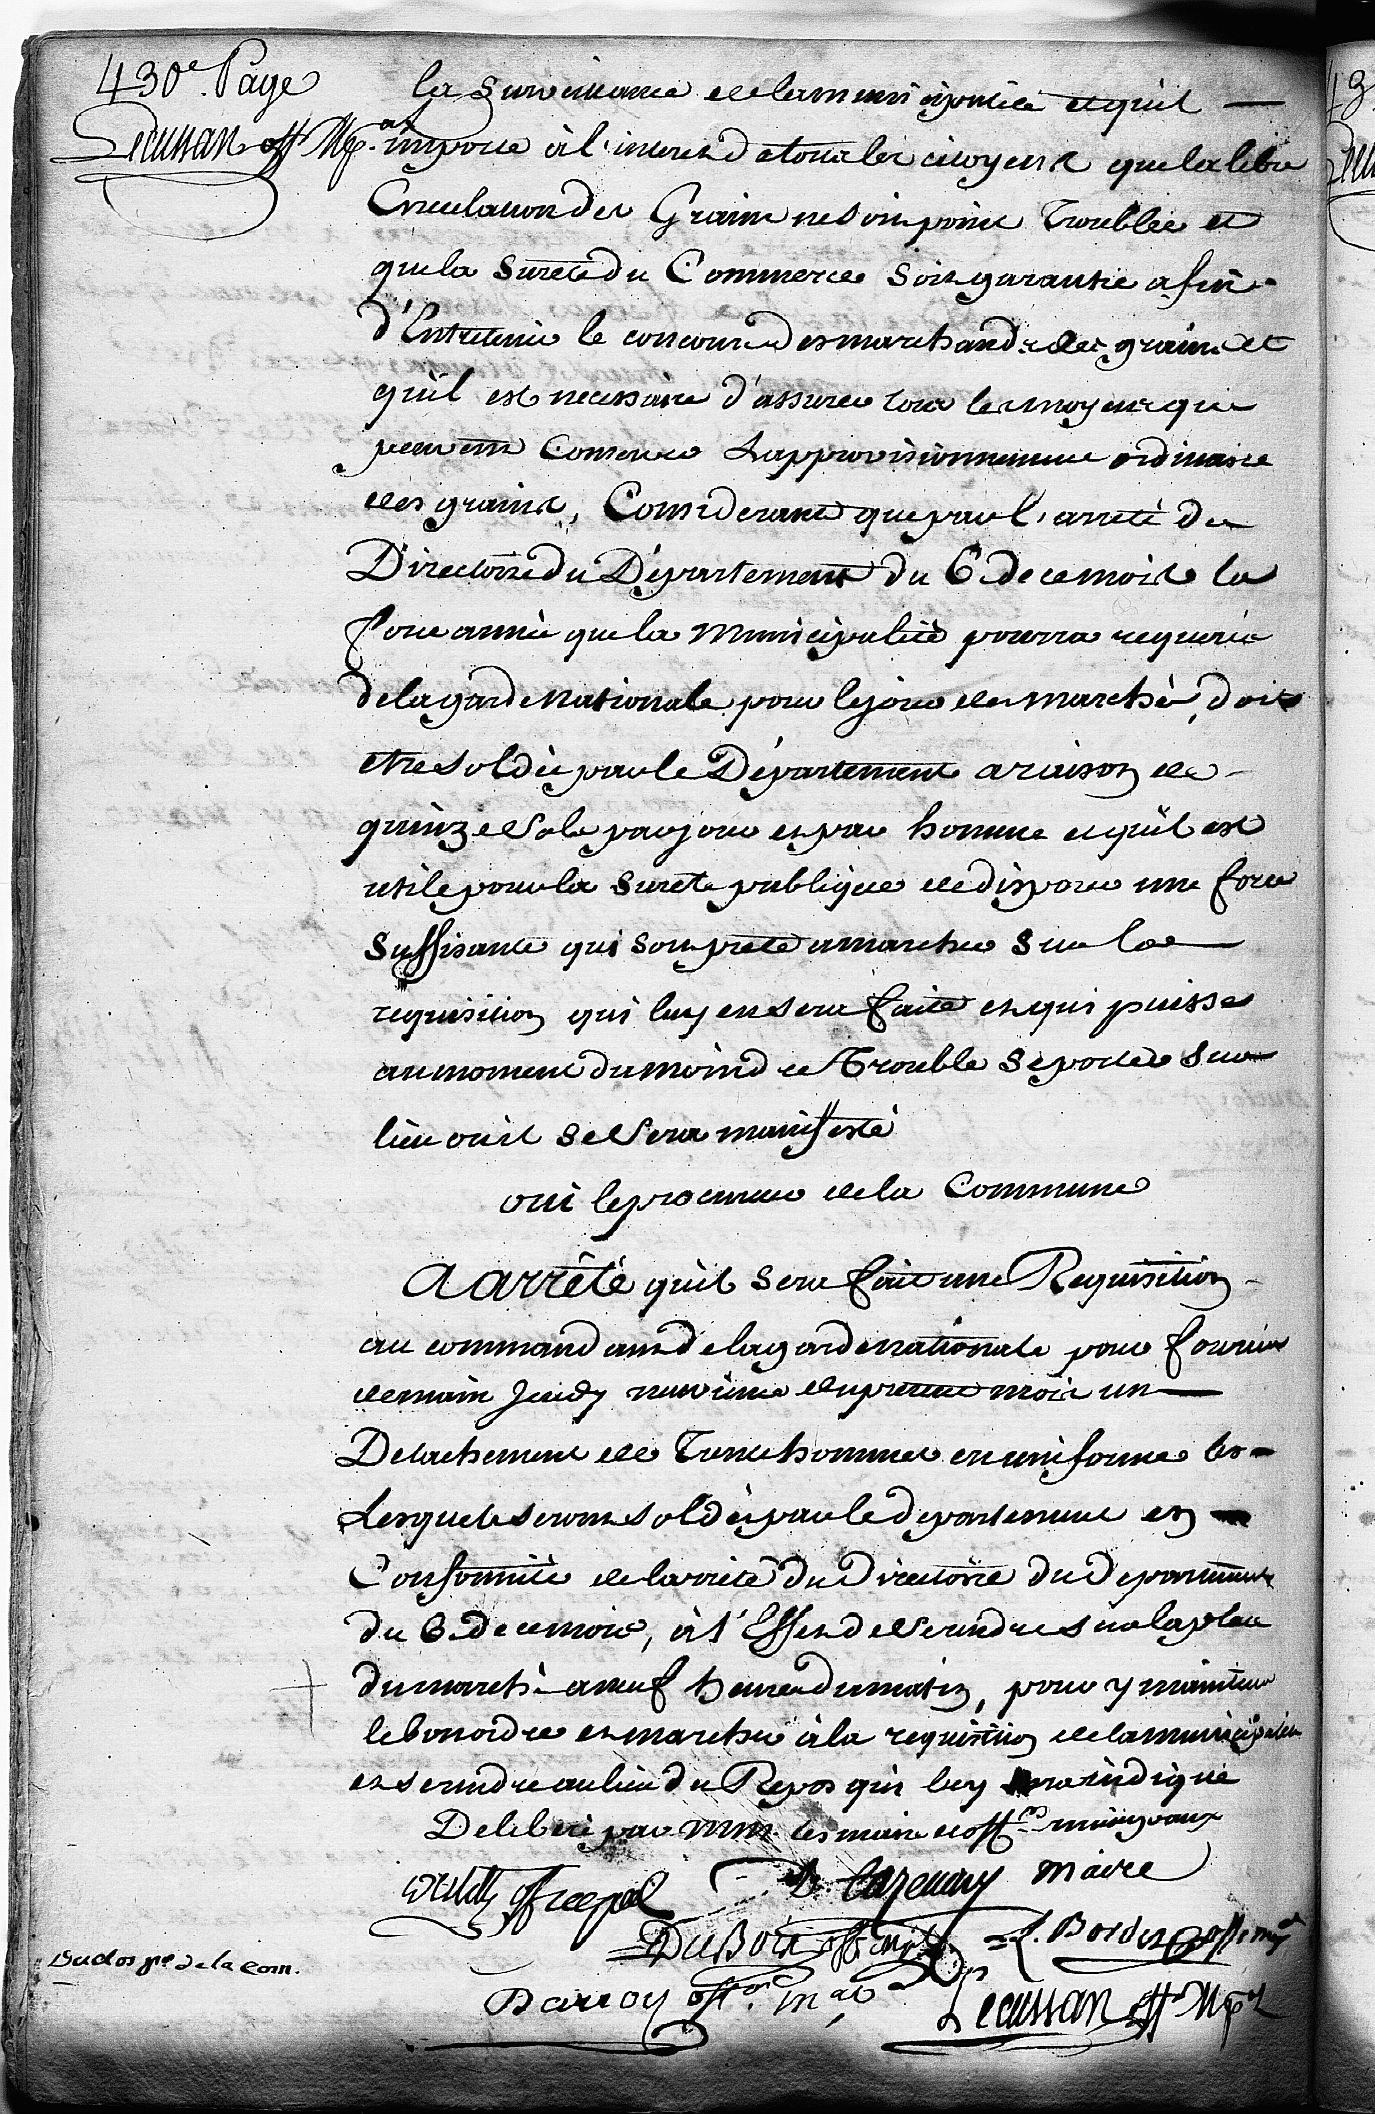 430e. Page
Lecussan off Mpal
la surveillance de la municipalité et quil
importe à l'interest de tous les citoyens que la libre
Circulation des Grains ne soit point Troublée et
que la sureté du Commerce soit garantie afin
d'Entretenir le concours des marchands de grains et
qu'il est necessaire d'assurer tous les moyens qui
peuvent Conserver Lapprovisionnement ordinaire
des grains, Considerant que par l'arreté du
Directoire du Département du 6. de ce mois la
force armée que la Municipalité pourra requerir
de la garde Nationale pour le jour des marchés, doit
etre soldée par le Département a raison de
quinze sols par jour et par homme et qu'il est
utile pour la sureté publique de disposer une force
suffisante qui soit prete a marcher sur la
requisition qui luy en sera faite et qui puisse
au moment du moindre Trouble se porter sur
lieu ou il se sera manifesté
oui le procureur de la Commune
A arrêté quil sera fait une Requisition
au commandant de la garde nationale pour fournir
demain Jeudy neuvieme du present mois un
Detachement de Trente hommes en uniforme les
Lesquels seront soldés par le departement en
Conformité de larreté du Directoire du Departement
du 6. de ce mois, à l'Effet de se rendre sur la place
du marché a neuf heures du matin, pour y maintenir
le bon ordre et marcher à la requisition de la municipalité
et se rendre au lieu du Repos qui luy sera indiqué
Deliberé par MM. les maire et offrs municipaux
D. Cazeaux Maire
DuBois off mpl
L. Bordes off mpl
Duclos pr. de la com.
Barroy offer. mal
Lecussan off Mpal